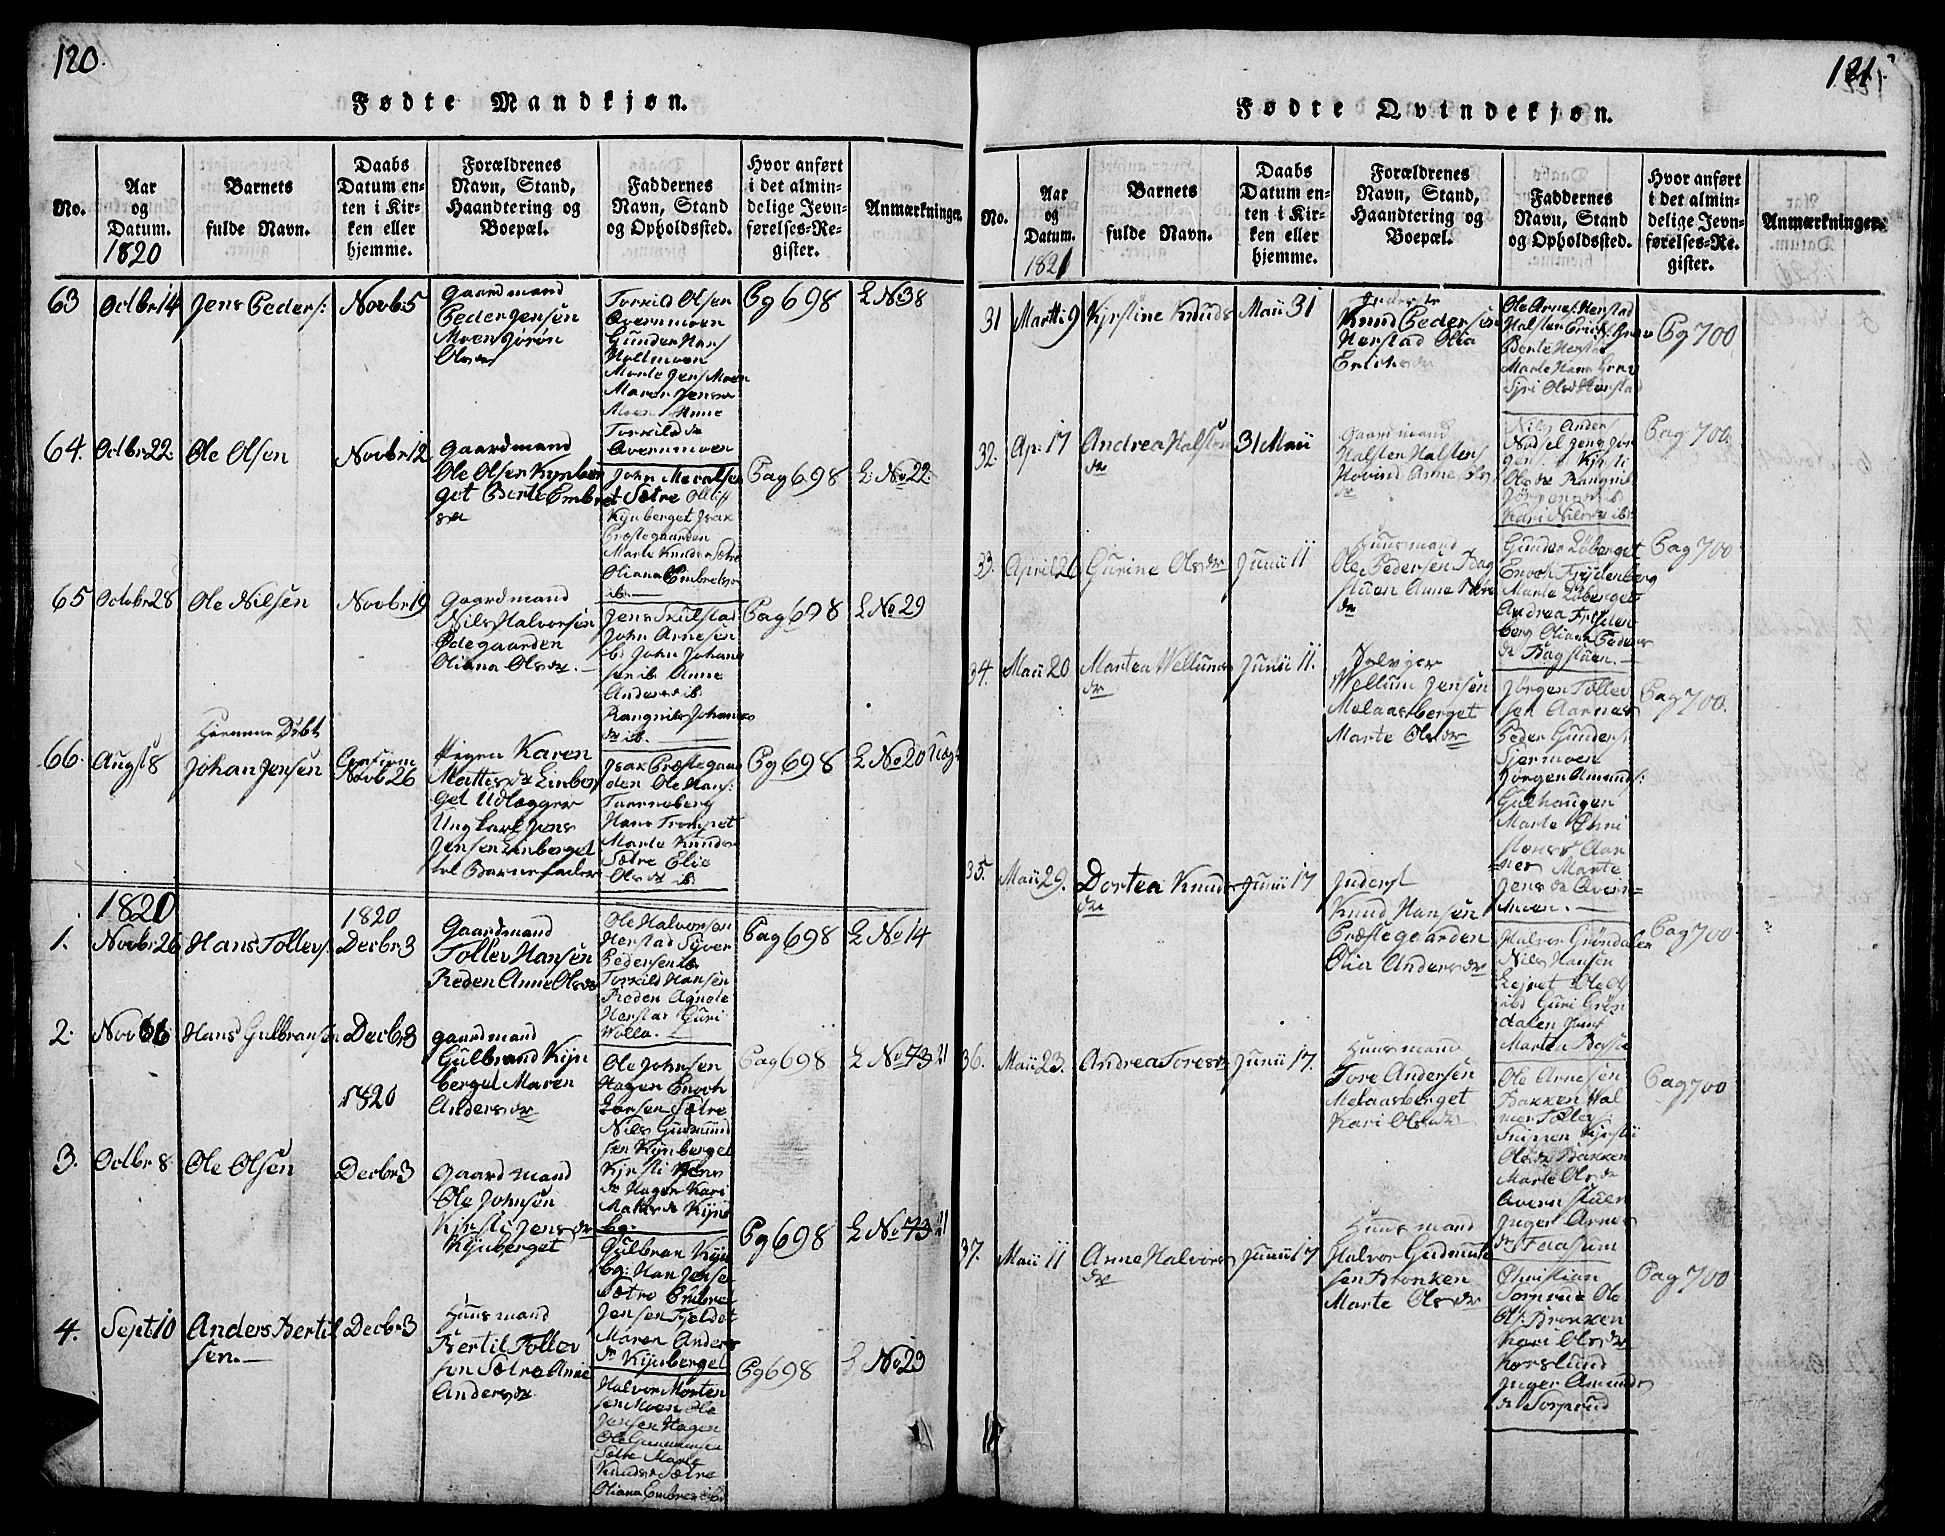 120.
Fødte Mandkjøn.
No.
Aar
og
Datum.
1820
Barnets
fulde Navn.
Daabs
Datum en-
ten i Kir-
ken eller
hjemme.
Forældrenes
Navn, Stand,
Haandtering og
Boepæl.
Faddernes
Navn, Stand
og Opholdssted.
Hvor anført
i det almin-
delige Jevn-
førelses-Re-
gister.
Anmærkninger.
63
Octbr 14
Jens Peders:
Novb: 5
Gaardmand
Peder Jensen
Moen Jørøn
Olsdr
Torkild Olsen
Overnmoen
Gunder Hans
Holtmoen
Marte Jens Moen
Maren Jensdr
Moen Anne
Torkildsdr
Overnmoen
Pg 698
L No 38
64.
Octbr 22
Ole Olsen
Novbr 12
Gaardmand
Ole Olsen Kynber
get Berte Embret
sdr
Sætre
Kynberget Isak
Præstegaarden
Marte Knudsdr Sætre
Oliana Embretsdr
ib.
Pag 698
L: No 22
65
Octobr 28
Ole Nilsen
Novbr 19
Gaardmand
Nils Halvorsen
Ødegaarden
Oliana Olsdr
Jens Skulstad
John Arnesen
ib. John Johane
sen ib Anne
Andersd ib
Rangnild Johanes
dr ib.
Pag 698
L No 29
66.
Augst 8
Hiemme Døbt
Johan Jensen
Confirm
Novb 26
Pigen Karen
Mattesdr Linber
get Udlægger
Ungkarl Jens
Jensen Linberget
til Barnefader
Isak Præstegaar
den Ole Hans:
Taarneberg
Hans Trompet
Marte Knuds
Sætre Elie
Olsdr ib
Pg 698
L No 20
1820
1.
Novbr 26
Hans Tollevs.
1820
Decbr 3
Gaardmand
Tollev Hansen
Reden Anne Olsdr
Ole Halvorsen
Herstad Syver
Pedersen ib
Torkild Hansen
Reden Agnete
Herstad Guri
Wolla.
Pag 698
L No 14
2.
Nov
Hans Gulbransen
Decbr 3
1820
Gaardmand
Gulbrand Kyn
berget Maren
Andersdr
Ole Johnsen
Hagen Enoch
Larsen Sætre
Nils Gudmund
sen Kynberget
Kjrsti Jens
dr Hagen Kari
Matsdr Kyn
bg:
Pag 698
L No 73 21
3.
Octbr 8
Ole Olsen
Decbr 3
Gaardmand
Ole Johnsen
Kjrsti Jensdr
Kynberget
Gulbran Kyn
bg: Han Jense
Sætre Embret
Jensen Fjeldet
Maren Anders
dr Kynberget
Pg 698
L No 73 21
4.
Sept 10
Anders Bertil
sen.
Decbr 3
Huusmand
Bertil Tollev
sen Sætre Anne
Andersdr
Halvor Morten
sen Moen Ole
Jensen Hagen
Sætre Marte
Knudsdr Sætre
Oliana Embresd ib.
Pg 698
L No 23
121.
Fødte Qvindekjøn.
No.
Aar
og
Datum.
1821
Barnets
fulde Navn.
Daabs
Datum en-
ten i Kir-
ken eller
hjemme.
Forældrenes
Navn, Stand,
Haandtering og
Boepæl.
Faddernes
Navn, Stand
og Opholdssted.
Hvor anført
i det almin-
delige Jevn-
førelses-Re-
gister.
Anmærkninger.
31
Martii 9
Kjrstine Knuds
Maii 31
Inderst
Knud Pedersen
Herstad Olia
Erichsdr
Ole Arnes: Herstad
Halsten Erichs:
Berte Herstad
Marte Hans
Siri Olsd Herstad
Pg 700
32.
Ap: 17
Andrea Halsten
dr
31 Maii
Gaardmand
Halsten Halstens
Hovind Anne Ols
dr
Nils Anders
Nodsel Jens Jør
gens: Kjrsti
Olsdr Rangnil
Jørgensd ib
Kari Nilsdr ib.
Pag 700
33.
April 26
Gurine Olsdr
Junii 11
Huusmand
Ole Pedersen Bag
stuen Anne
dr
Gunder Løberget
Enoch Frydenberg
Marte Løberget
Andrea Fryden
berg Oliana Peders
dr Bagstuen.
Pag 700
34.
Maii 20
Martea Wellums
dr
Junii 11.
Selvejer
Wellum Jensen
Melaasberget
Marte Olsdr
Jørgen Tollev
sen Aarnes
Peder Gunders:
Sjermoen
Jørgen Amunds:
Gulhaugen
Marte Chri
stensdr Aar
nes Marte
Jensdr Overn
moen.
Pag 700.
35.
Maii 29.
Dortea Knuds
dr
Junii 17
Inderst
Knud Hansen
Præstegaarden
Olia Andersdr
Halvor Grøndalen
Nils Hansen
Lejret Ole Ol
Guri Grøn
dalen
Marten
Pag 700
36.
Maii 23.
Andrea Toresdr
Junii 17.
Huusmand
Tore Andersen
Melaasberget
Kari Olsdr
Ole Arnesen
Bakken Hal
vor Tollevs:
Snippen Kjrsti
Olsdr Bakken
Marte Olsdr
Overnstuen
Inger Arnes
dr Faasum
Pag 700
37.
Maii 11
Anne Halvors
dr
Junii 17
Huusmand
Halvor Gudmunt
sen Bronken
Marte Olsdr
Christian
Torprud Ole
Ols: Bronken
Kari Olsdr
Korslund
Inger Amunds
dr Torprud
Pag 700